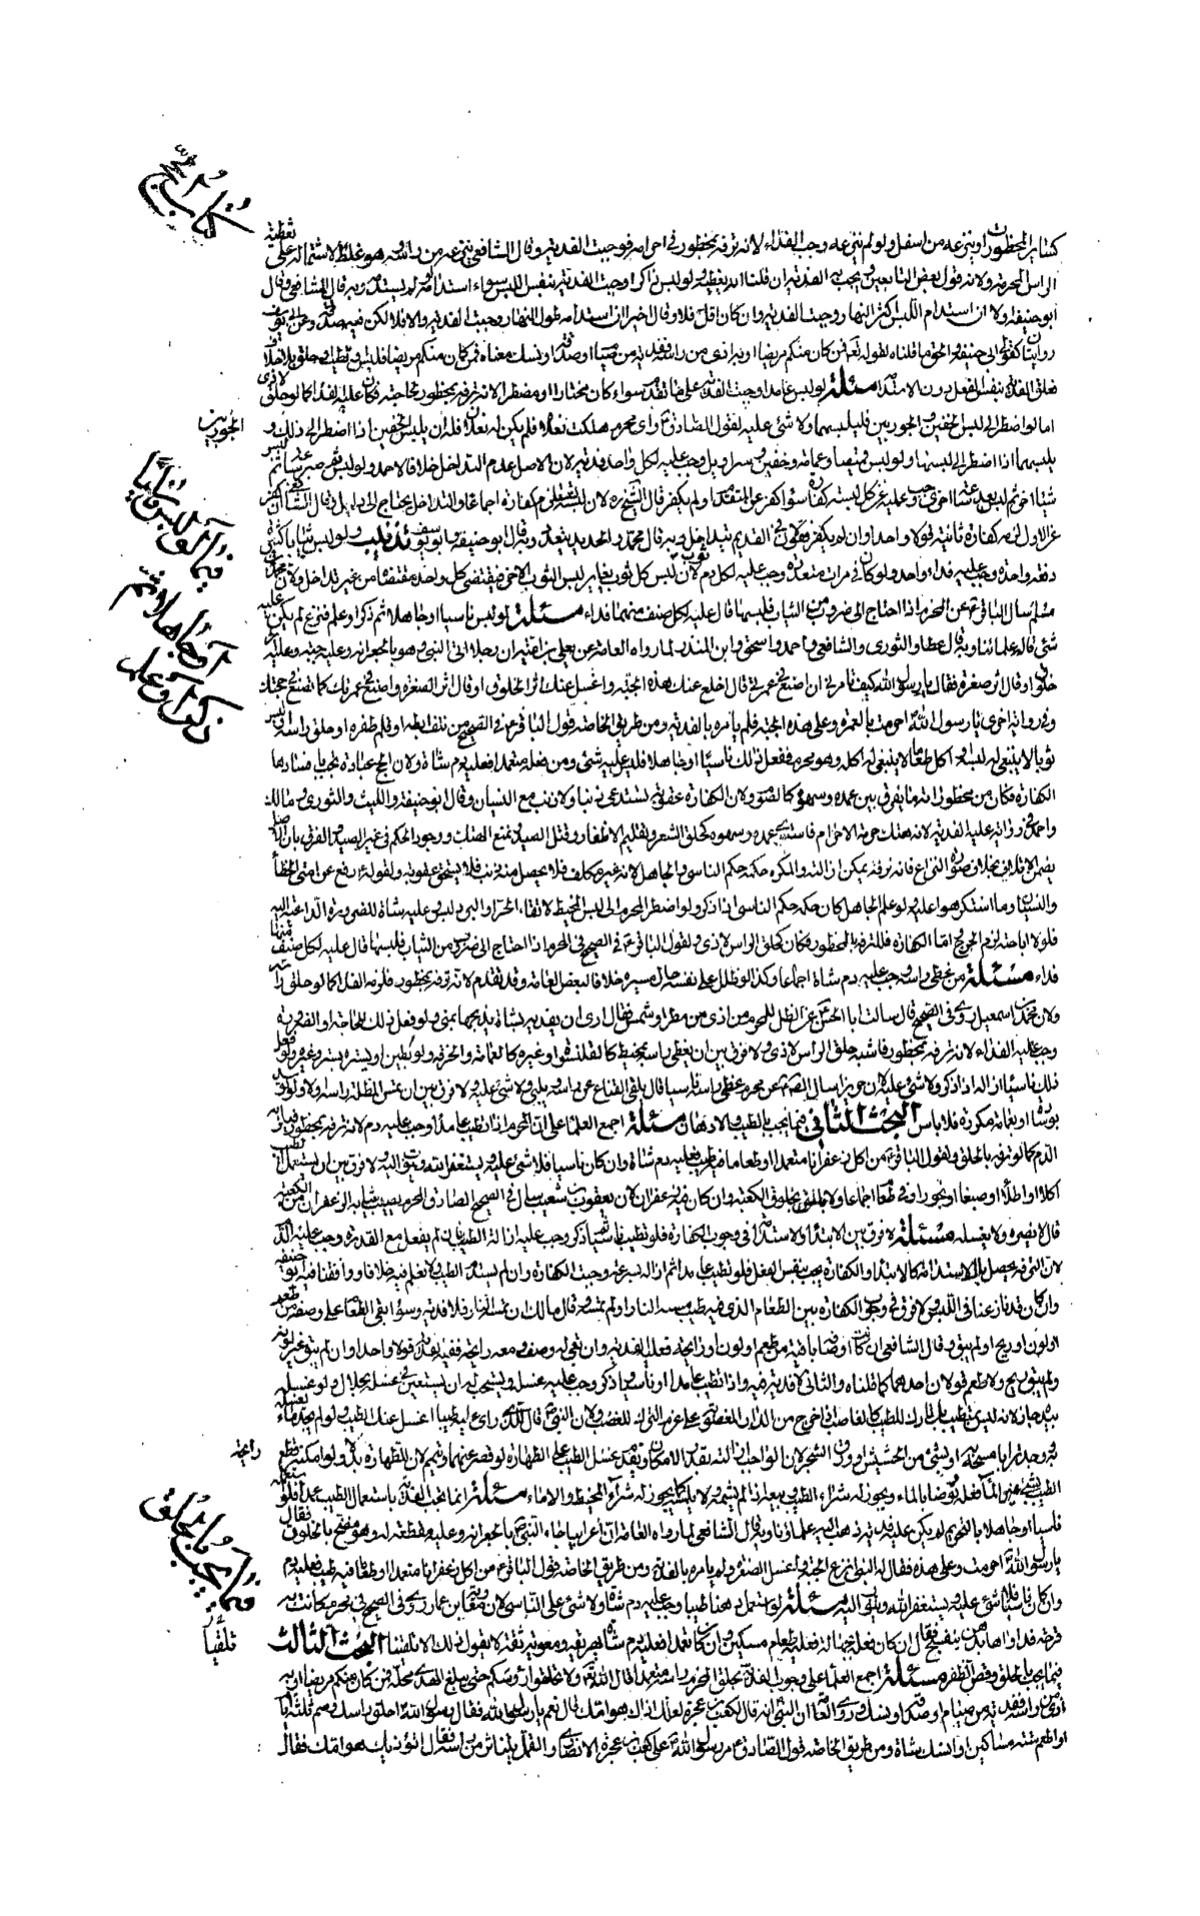 كتاب الحج
كسائر المحظورات او ينزعه من اسفل ولو لم ينزعه وجب الفداء لانه ترفه بمحظور في احرامه فوجبت الفدية وقال الشافعي ينزعه من راسه وهو غلط لاشتماله على تغطية
الراس المحرمة ولانه قول بعض التابعين ويجب به الفدية ان قلنا انه تغطية ولو لبس ذاكرا وجبت الفدية بنفس اللبس سواء استدامه او لم يستدمه وبه قال الشافعي وقال
ابو حنيفة ان استدام اللبس اكثر النهار وجبت الفدية وان كان اقل فلا وقال اخيرا ان استدامه طول النهار وجبت الفدية والا فلا لكن فيه صدقة وعن ابي يوسف
روايتان كقولي ابي حنيفة والحق ما قلناه لقوله تعالى فمن كان منكم مريضا او به اذى من راسه ففدية من صيام او صدقة او نسك معناه فمن كان منكم مريضا فلبس او تطيب او حلق بلا خلاف
فعلق الفدية بنفس الفعل دون الاستدامة مسئلة لو لبس عامدا وجبت الفدية على ما تقدم سواء كان مختارا او مضطرا لانه ترفه بمحظور لحاجته فكان عليه الفداء كما لو حلق لاذى
اما لو اضطر الى لبس الخفين والجوربين فليلبسهما ولا شئ عليه لقول الصادق ع واي محرم هلكت نعلاه فلم يكن له نعلان فله ان يلبس الخفين اذا اضطر الى ذلك و
الجوربين
يلبسهما اذا اضطر الى لبسهما ولو لبس قميصا وعمامة وخفين وسراويل وجب عليه لكل واحد فدية لان الاصل عدم التداخل خلافا لاحمد ولو لبس قميصا
شيئا اخر ثم لبس بعد ساعة اخرى وجب عليه عن كل لبسة كفارة سواء كفر عن المتقدم او لم يكفر قال الشيخ ره لان لبسه يستلزم كفارة اجماعا والتداخل يحتاج الى دليل وقال الشافعي ان كفر
عن الاول لزمه كفارة ثانية قولا واحدا وان لم يكفر فقولان في القديم تتداخل وبه قال محمد وفي الجديد يتعدد وبه قال ابو حنيفة وابو يوسف تذنيب ولو لبس ثيابا كثيرة
دفعة واحدة وجب عليه فداء واحد ولو كان في مرات متعددة وجب عليه لكل ثوب دم لان لبس كل ثوب يغاير لبس الثوب الاخر فيقتضي كل واحد مقتضاه من غير تداخل ولان محمد بن
مسلم سال الباقر ع عن المحرم اذا احتاج الى ضروب من الثياب فلبسها قال عليه لكل صنف منها فداء مسئلة لو لبس ناسيا او جاهلا ثم ذكر او علم فنزع لم يكن عليه
فيما لو لبس ناسيا
او جاهلا ثم
ذكر او علم
شئ قاله علمائنا وبه قال عطا والثوري والشافعي واحمد واسحق وابن المنذر لما رواه العامة عن يعلى بن امية ان رجلا اتى النبي ص وهو بالجعرانة وعليه جبة وعليه
خلوق او قال اثر صفرة فقال يا رسول الله كيف تامرني ان اصنع في عمرتي قال اخلع عنك هذه الجبة واغسل عنك اثر الخلوق او قال اثر الصفرة واصنع في عمرتك كما تصنع في حجتك
وفي رواية اخرى يا رسول الله احرمت بالعمرة وعلى هذه الجبة فلم يامره بالفدية ومن طريق الخاصة قول الباقر ع في الصحيح من نتف ابطه او قلم ظفره او حلق راسه او لبس
ثوبا لا ينبغي له لبسه او اكل طعاما لا ينبغي له اكله وهو محرم ففعل ذلك ناسيا او جاهلا فليس عليه شئ ومن فعله متعمدا فعليه دم شاة ولان الحج عبادة يجب بافسادها
الكفارة فكان من محظوراته ما يفرق بين عمده وسهوه كالصوم ولان الكفارة عقوبة تستدعي ذنبا ولا ذنب مع النسيان وقال ابو حنيفة والليث والثوري ومالك
واحمد في رواية عليه الفدية لانه هتك حرمة الاحرام فاستوى عمده وسهوه كحلق الشعر وتقليم الاظفار وقتل الصيد ونمنع الهتك ووجود الحكم في غير الصيد والفرق بان الصيد
يضمن الاتلاف بخلاف صورة النزاع فانه ترفه يمكن ازالته والمكره حكمه حكم الناسي والجاهل لانه غير مكلف فلا يحصل منه ذنب فلا يستحق عقوبة ولقوله ع رفع عن امتي الخطأ
والنسيان وما استكرهوا عليه ولو علم الجاهل كان حكمه حكم الناسي اذا ذكر ولو اضطر المحرم الى لبس المخيط لاتقاء الحر او البرد لبس وعليه شاة للضرورة الداعية اليه
فلولا اباحته لزم الحرج اما الكفارة فللترفه بالمحظور فكان كحلق الراس لاذى ولقول الباقر ع في الصحيح في المحرم اذا احتاج الى ضروب من الثياب فلبسها قال عليه لكل صنف منها
فداء مسئلة من غطى راسه وجب عليه دم شاة اجماعا وكذا لو ظلل على نفسه حال سيره خلافا لبعض العامة وقد تقدم لانه ترفه بمحظور فلزمه الفداء كما لو حلق راسه
ولان محمد بن اسمعيل روى في الصحيح قال سالت ابا الحسن ع عن الظل للمحرم من اذى من مطر او شمس فقال ارى ان يفديه بشاة يذبحها بمنى ولو فعل ذلك للحاجة او الضرورة
وجب عليه الفداء لانه ترفه بمحظور فاشبه حلق الراس لاذى ولا فرق بين ان يغطي راسه بمخيط كالقلنسوة او غيره كالعمامة والخرقة ولو بطين او يستره بستر وغيره ولو فعل
ذلك ناسيا ازاله اذا ذكر ولا شئ عليه لان حريزا سال الصادق ع عن محرم غطى راسه ناسيا قال يلقي القناع عن راسه ويلبي ولا شئ عليه ولا فرق بين ان تمس المظلة راسه او لا ولو توسد
بوسادة او بعمامة مكورة فلا باس البحث الثاني فيما يجب بالطيب والادهان مسئلة اجمع العلماء على ان المحرم اذا تطيب عامدا وجب عليه دم لانه ترفه بمحظور فيلزمه
الدم كما لو ترفه بالحلق ولقول الباقر ع من اكل زعفرانا متعمدا او طعاما فيه طيب فعليه دم شاة وان كان ناسيا فلا شئ عليه ويستغفر الله ويتوب اليه ولا فرق بين ان يستعمل الطيب
اكلا او اطلاء او صبغا او بخورا او في طعام اجماعا ولا باس بخلوق الكعبة وان كان فيه زعفران لان يعقوب بن شعيب سال في الصحيح الصادق ع المحرم يصيب ثيابه الزعفران من الكعبة
قال لا يضره ولا يغسله مسئلة لا فرق بين الابتداء والاستدامة في وجوب الكفارة فلو تطيب ناسيا ثم ذكر وجب عليه ازالة الطيب فان لم يفعل مع القدرة وجب عليه الدم
لان الترفه يحصل بالاستدامة كالابتداء والكفارة يجب بنفس الفعل فلو تطيب عامدا ثم ازاله بسرعة وجبت الكفارة وان لم يستدم الطيب ولا نعلم فيه خلافا ووافقنا فيه ابو حنيفة
وان كان قد نازعنا في اللبس ولا فرق في وجوب الكفارة بين الطعام الذي فيه طيب مسته النار او لم تمسه وقال مالك ان مسته النار فلا فدية وسواء بقي الطعام على وصفه من طعم
او لون او ريح او لم يبق وقال الشافعي ان كانت اوصافه باقية من طعم او لون او رائحة فعليه الفدية وان بقي له وصف ومعه رائحة ففيه الفدية قولا واحدا وان لم يبق غير لونه
ولم يبق ريح ولا طعم قولان احدهما كما قلناه والثاني لا فدية فيه واذا تطيب عامدا او ناسيا وذكر وجب عليه غسله ويستحب له ان يستعين في غسله بحلال ولو غسله
بيده جاز لانه ليس بمتطيب بل تارك للطيب كالغاصب اذا خرج من الدار المغصوبة على عزم الترك للغصب ولان النبي ص قال للذي راى عليه طيبا اغسل عنك الطيب ولو لم يجد ماء يغسله
به وجد ترابا مسحه به او بشئ من الحشيش او ورق الشجر لان الواجب ازالته بقدر الامكان ويقدم غسل الطيب على الطهارة لو قصر عنهما ويتيمم لان للطهارة بدلا ولو امكنه قطع
رائحة
الطيب بشئ غير الماء فعله وتوضا بالماء ويجوز له شراء الطيب وبيعه اذا لم يشمه ولا يلمسه كما يجوز له شراء المخيط والاماء مسئلة انما يجب الفدية باستعمال الطيب عمدا فلو استعمله
ناسيا او جاهلا بالتحريم لم يكن عليه فدية ذهب اليه علمائنا وبه قال الشافعي لما رواه العامة ان اعرابيا جاء النبي ص بالجعرانة وعليه مقطعة له وهو متضمخ بالخلوق فقال
يا رسول الله احرمت وعلى هذه فقال له النبي ص انزع الجبة واغسل الصفرة ولم يامره بالفدية ومن طريق الخاصة قول الباقر ع من اكل زعفرانا متعمدا او طعاما فيه طيب فعليه دم
وان كان ناسيا فلا شئ عليه ويستغفر الله ويتوب اليه مسئلة لو استعمل دهنا طيبا وجب عليه دم شاة ولا شئ على الناسي لان معوية بن عمار روى في الصحيح في محرم كانت به
قرحة فداواها بدهن بنفسج فقال ان كان فعله بجهالة فعليه طعام مسكين وان كان تعمد فعليه دم شاة يهريقه ومعوية ثقة لا يقول ذلك الا تلقينا البحث الثالث
تلقيا
فيما يجب بالحلق
فيما يجب بالحلق وقص الظفر مسئلة اجمع العلماء على وجوب الفدية بحلق المحرم راسه متعمدا قال الله تعالى ولا تحلقوا رؤسكم حتى يبلغ الهدي محله فمن كان منكم مريضا او به
اذى من راسه ففدية من صيام او صدقة او نسك وروى العامة ان النبي ص انه قال لكعب بن عجرة لعلك اذاك هوامك قال نعم يا رسول الله فقال رسول الله ص احلق راسك وصم ثلثة ايام
او اطعم ستة مساكين او انسك بشاة ومن طريق الخاصة قول الصادق ع مر رسول الله ص على كعب بن عجرة الانصاري والقمل يتناثر من راسه فقال اتؤذيك هوامك فقال